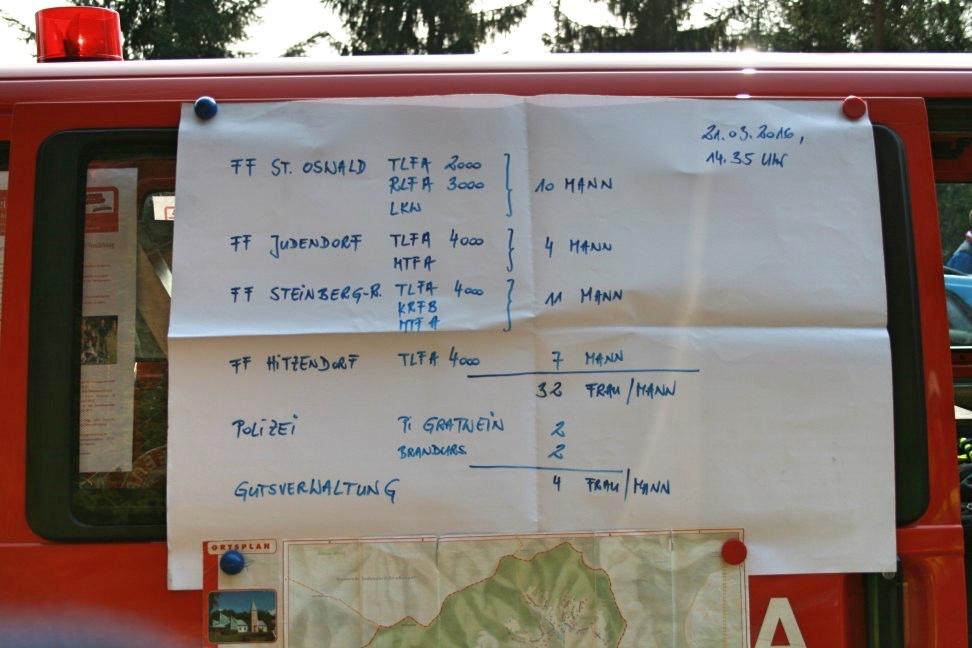 21.03.2016,
14.35 Uhr
FF ST. OSWALD TLFA 2000
RLFA 3000 10 MANN
LKW
FF JUDENDORF TLFA 4000 4 MANN
MTFA
FF STEINBERG-R. TLFA 4000 11 MANN
KRFB
MTFA
FF HITZENDORF TLFA 4000 7 MANN
32 FRAU/MANN
POLIZEI Pi GRATWEIN 2
BRANDURS. 2
GUTSVERWALTUNG 4 FRAU/MANN
ORTSPLAN
A